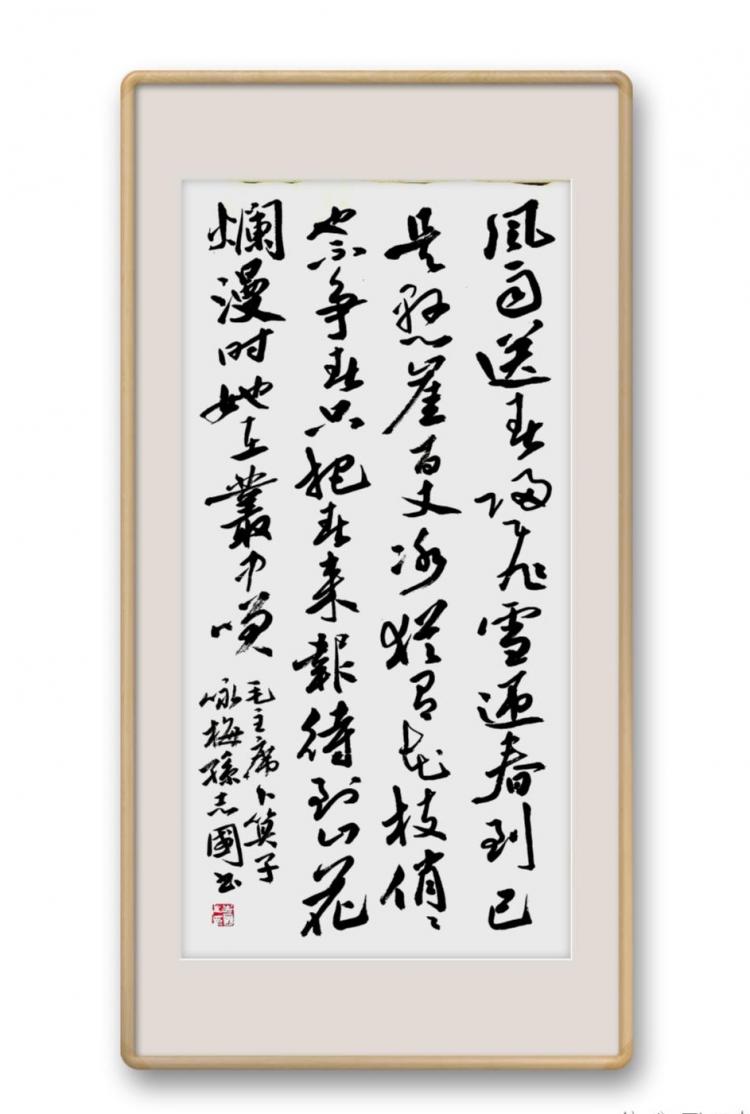 風雨送春歸飛雪迎春到已
是懸崖百丈冰猶有花枝俏〻
也不争春只把春来報待到山花
爛漫时她在叢中咲
毛主席卜算子
咏梅孫志國书